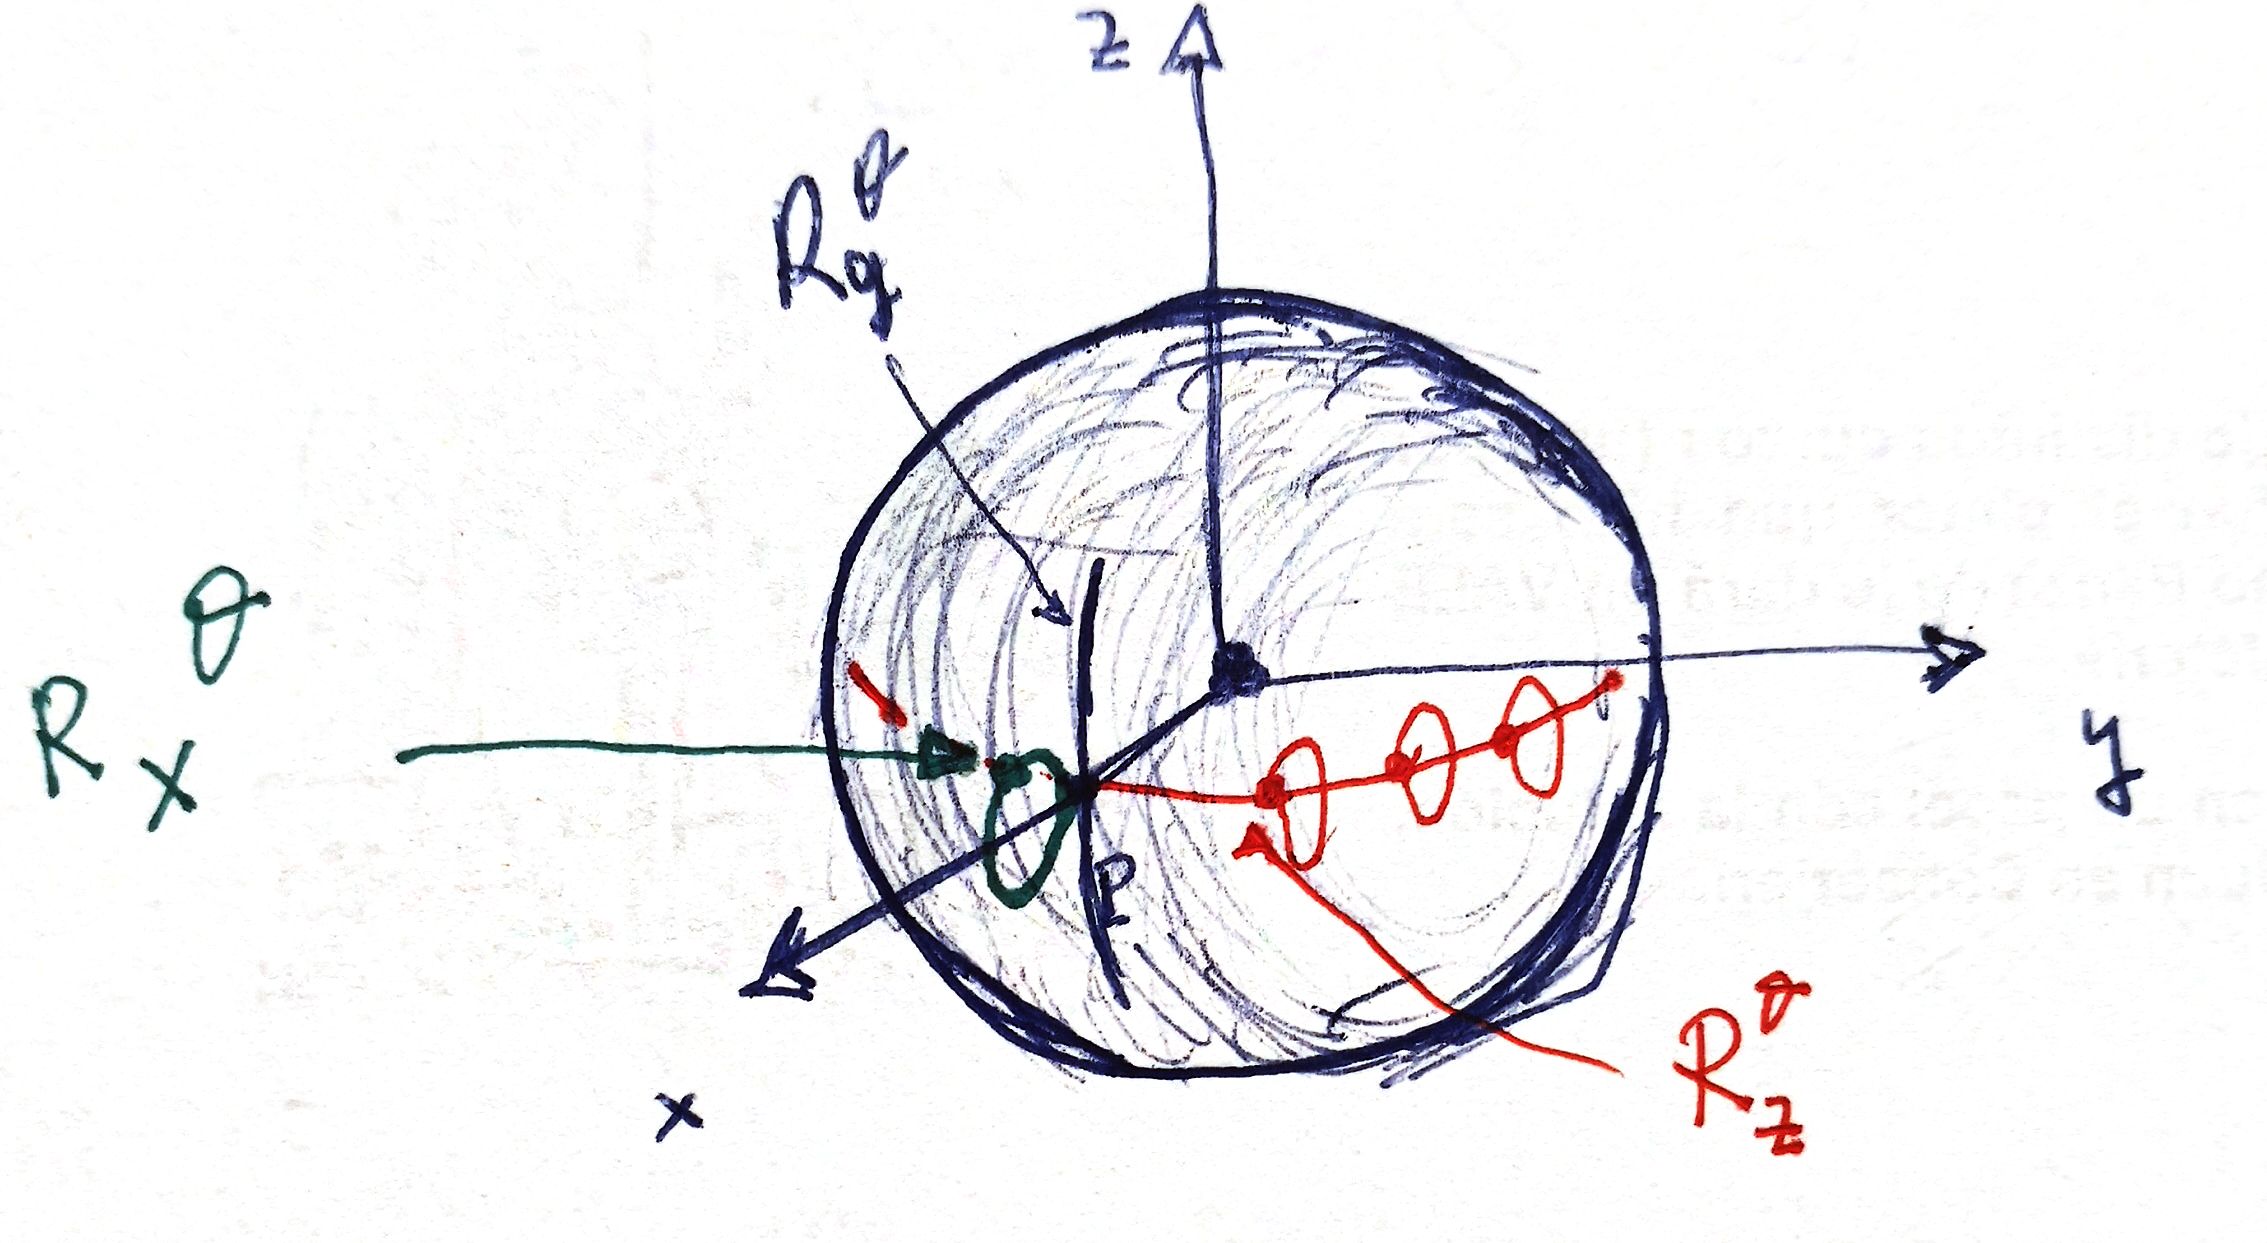 z
R_y^θ
R_x^θ
P
y
x
R_z^θ